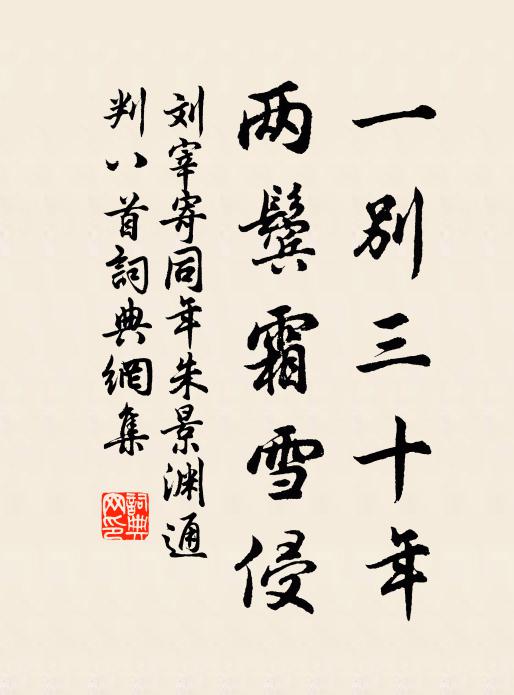 一别三十年
两鬓霜雪侵
刘宰寄同年朱景渊通
判八首詞典網集
詞典
网印